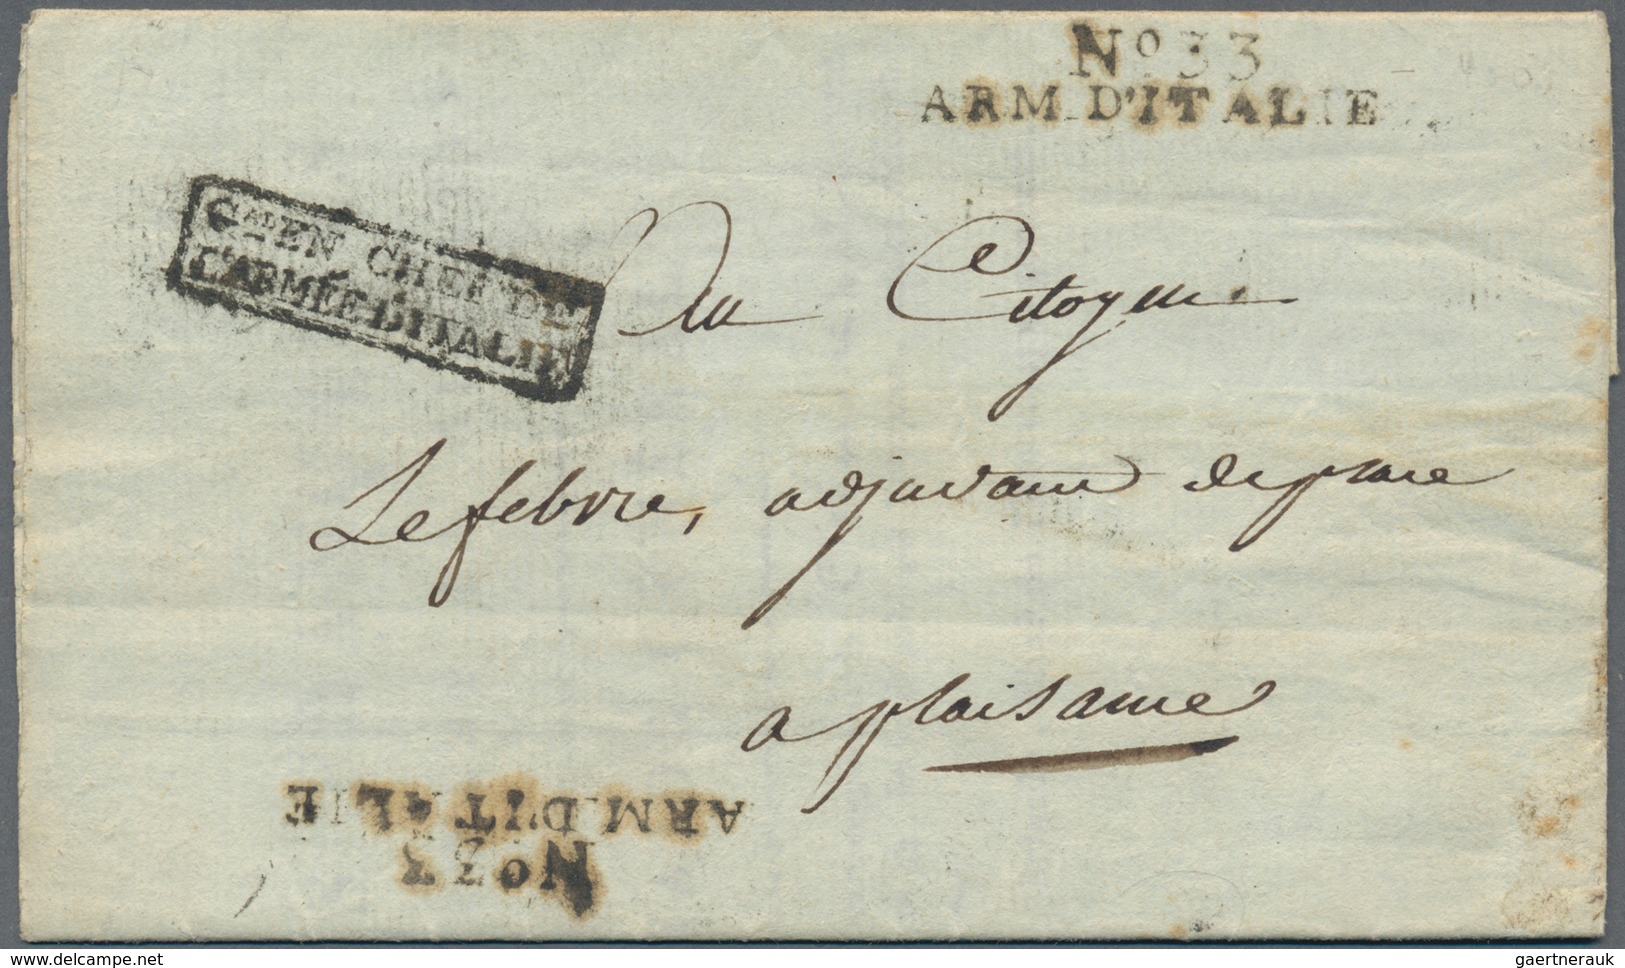 No 33
ARM. D'ITALIE
Gal EN CHEF DE
L'ARMÉE D'ITALIE
Au Citoyen
Lefebvre, adjudant de place
a plaisance
ARM. D'ITALIE
No 33
delcampe.net
gaertnerauk